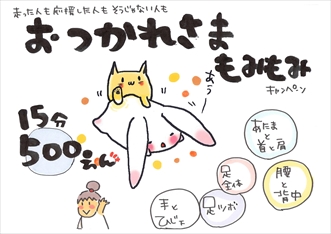 走った人も応援した人も そうじゃない人も
おつかれさま
もみもみ
キャンペーン
おぅ
15分
500えん
あたま
と
首と肩
足
全体
腰
と
背中
手と
ひじ下
足ツボ